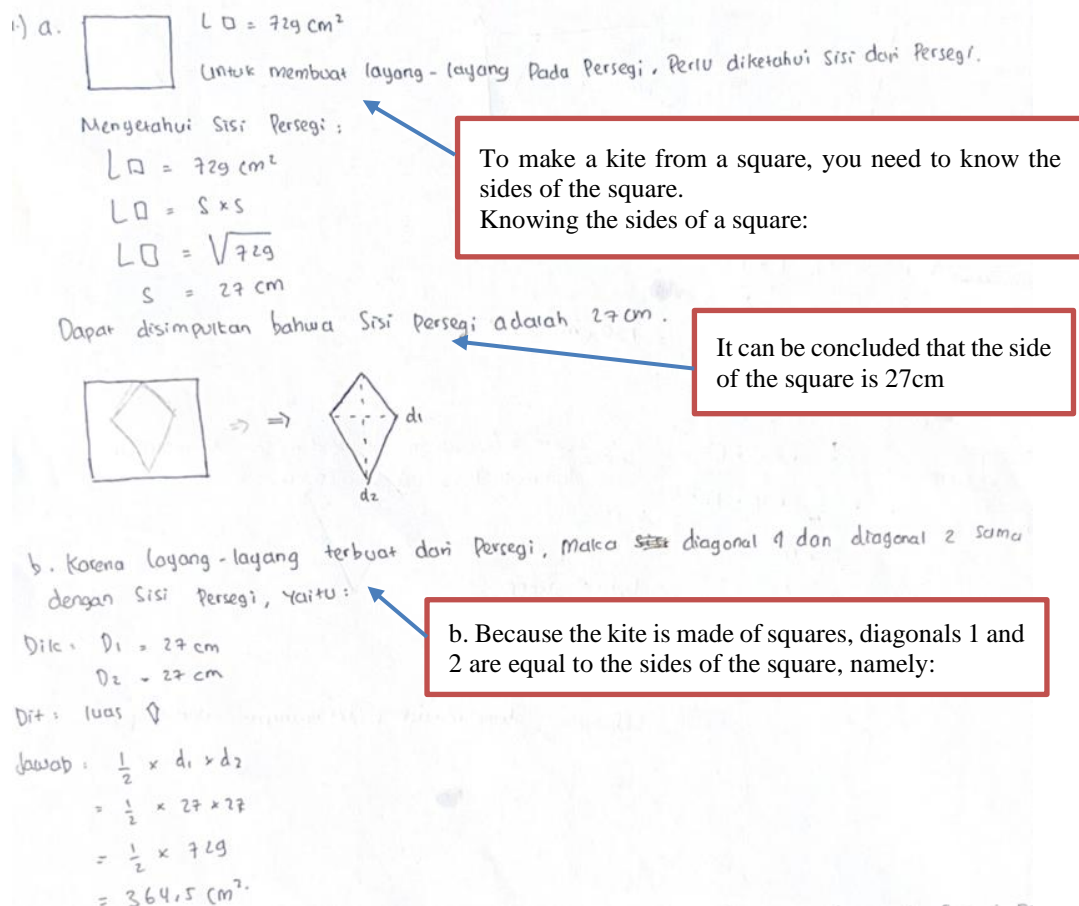 1.) a. L□ = 729 cm²
Untuk membuat layang-layang Pada Persegi, Perlu diketahui Sisi dari Persegi.
Mengetahui Sisi Persegi :
L□ = 729 cm²
L□ = S × S
L□ = √729
S = 27 cm
To make a kite from a square, you need to know the
sides of the square.
Knowing the sides of a square:
Dapat disimpulkan bahwa Sisi Persegi adalah 27 cm.
It can be concluded that the side
of the square is 27cm
⇒ ⇒ d1
d2
b. Karena layang-layang terbuat dari Persegi, Maka sisi diagonal 1 dan diagonal 2 sama
dengan Sisi Persegi, Yaitu :
b. Because the kite is made of squares, diagonals 1 and
2 are equal to the sides of the square, namely:
Dik : D1 = 27 cm
D2 = 27 cm
Dit : luas
Jawab : 1/2 × d1 × d2
= 1/2 × 27 × 27
= 1/2 × 729
= 364,5 cm².